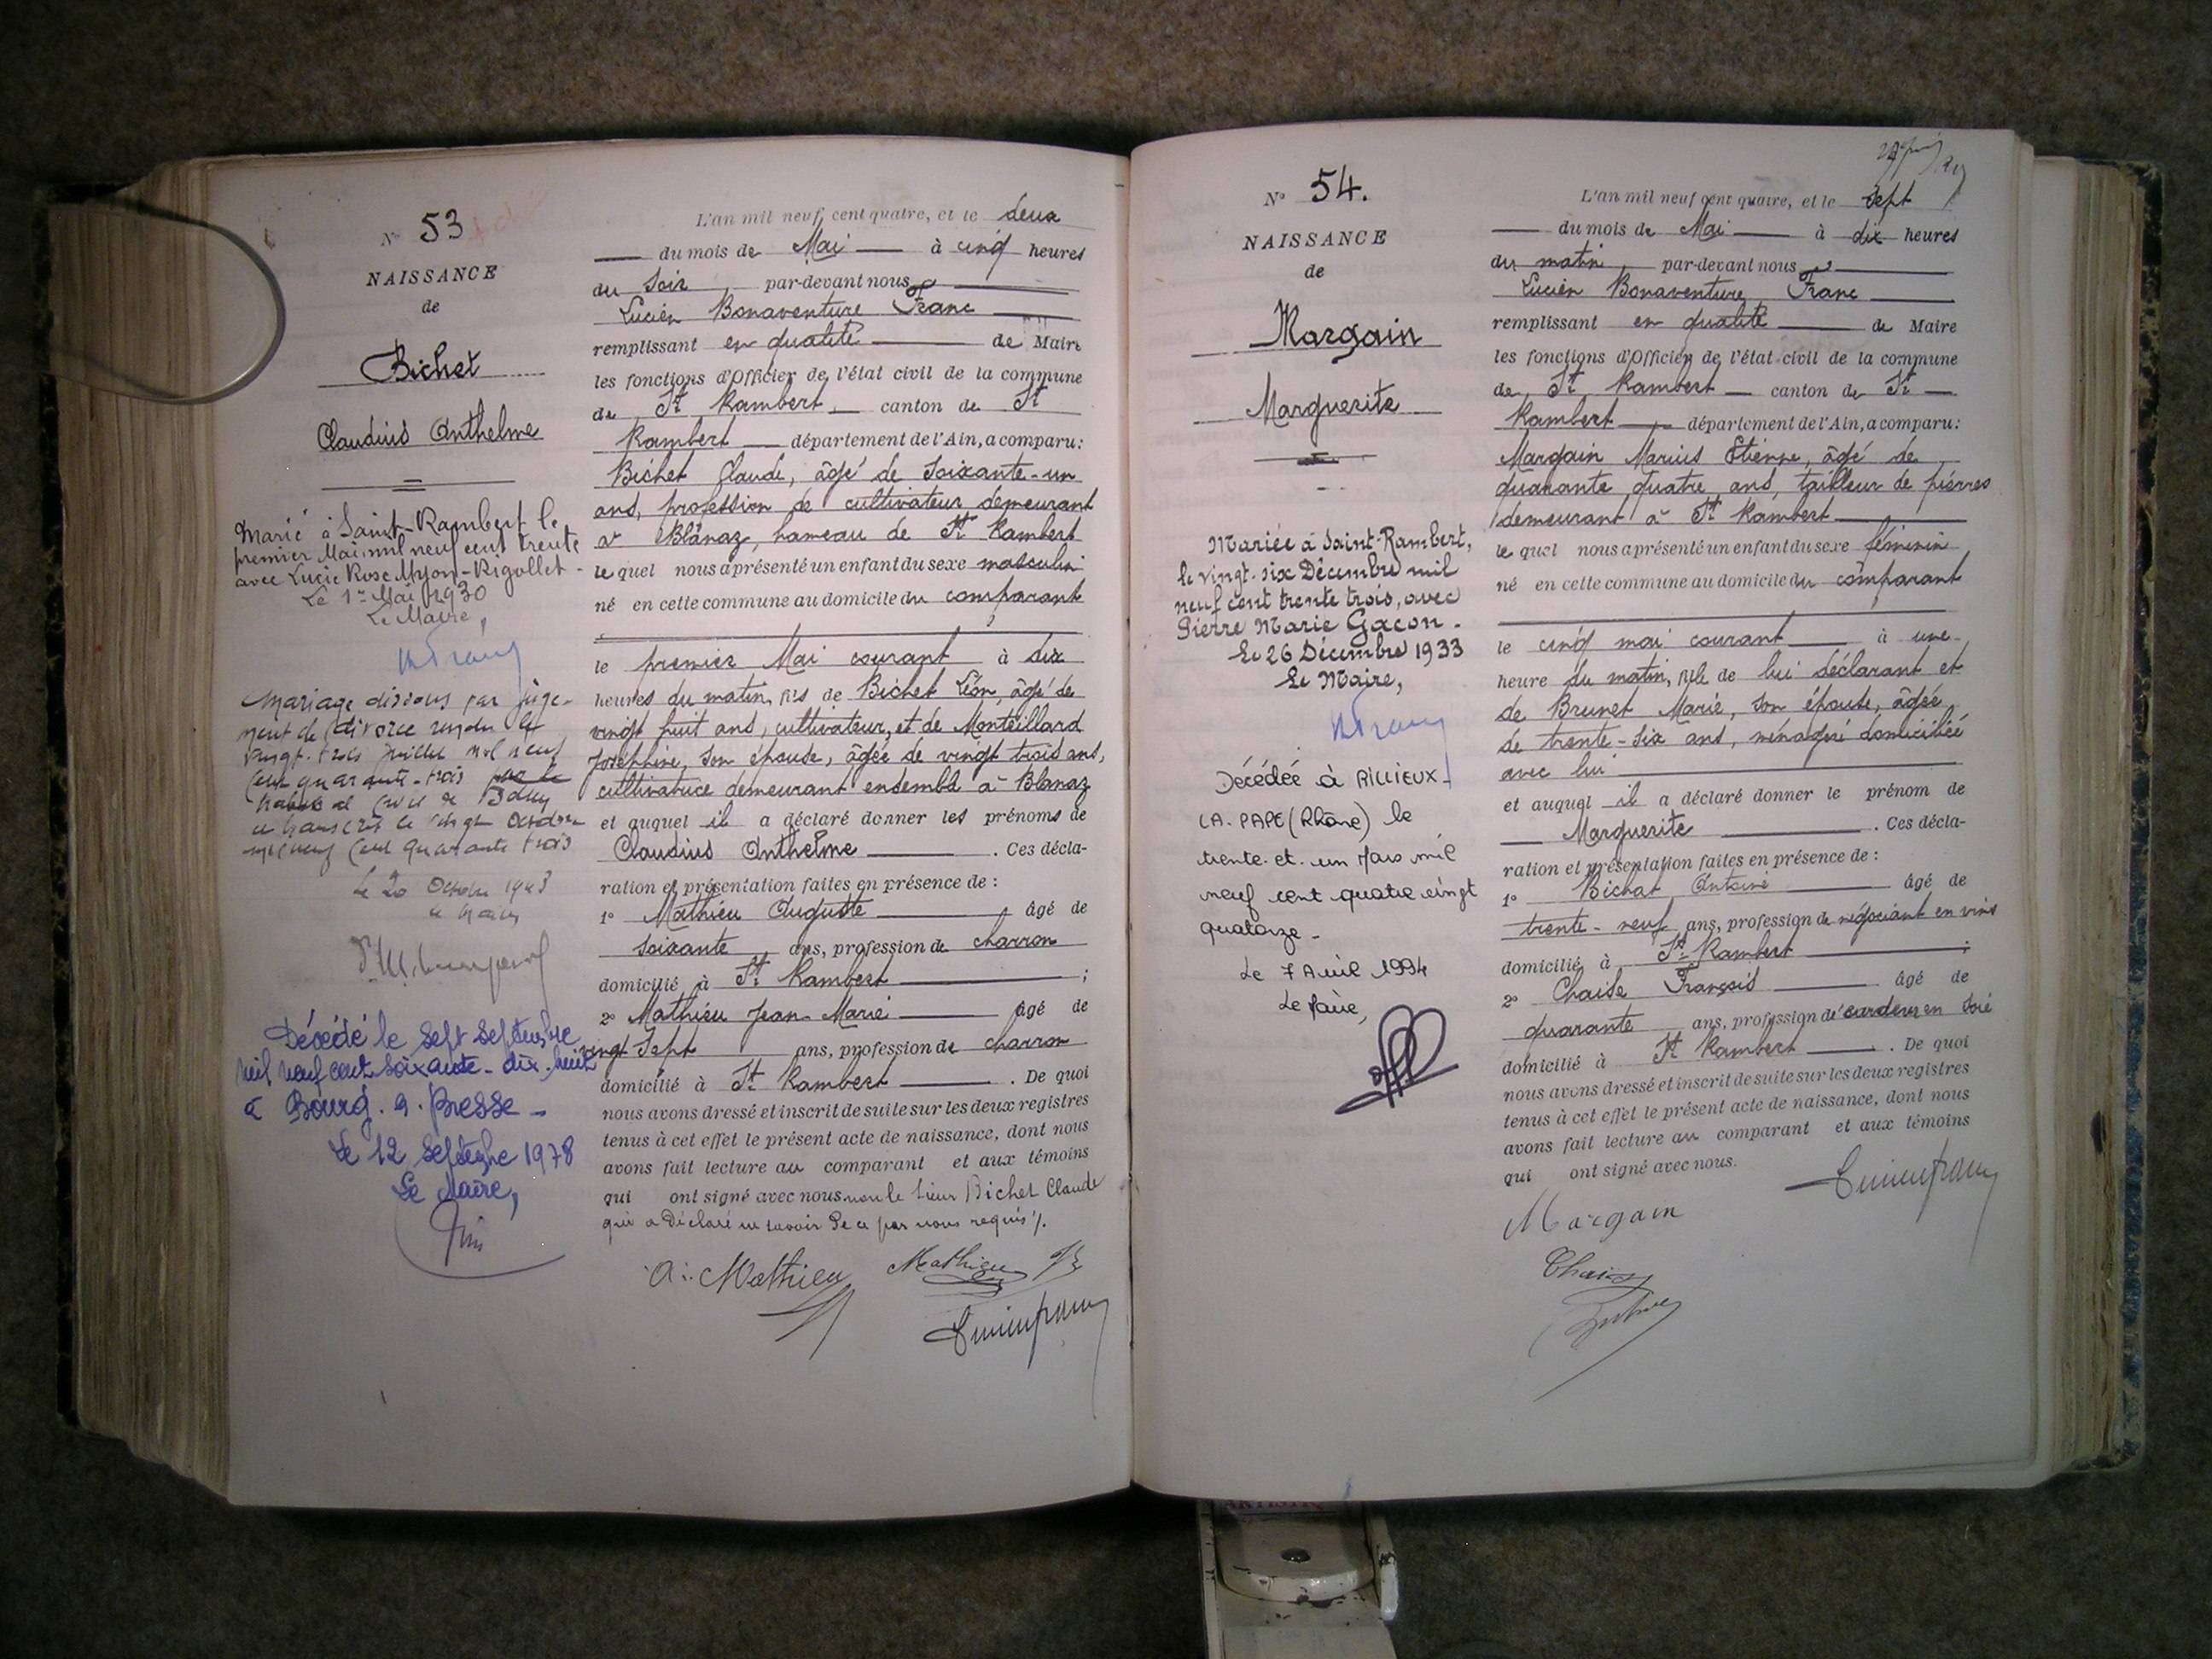 N° 53
NAISSANCE
de
Bichet
Claudius Anthelme
Marié à Saint-Rambert le
premier Mai mil neuf cent trente
avec Lucie Rose Myon-Rigollet-
Le 1er Mai 1930
Le Maire,
Mariage dissous par juge-
ment de divorce rendu le
vingt-trois juillet mil neuf
cent quarante-trois par le
tribunal civil de Belley
et transcrit le vingt Octobre
mil neuf cent quarante trois
Le 20 Octobre 1943
Le Maire
Décédé le sept septembre
mil neuf cent soixante-dix-huit
à Bourg-en-Bresse-
Le 12 Septembre 1978
Le Maire,
L'an mil neuf cent quatre, et le deux
du mois de Mai à cinq heures
du soir, par-devant nous
Lucien Bonaventure Franc
remplissant en qualité de Maire
les fonctions d'Officier de l'état civil de la commune
de St Rambert, canton de St
Rambert département de l'Ain, a comparu:
Bichet Claude, âgé de soixante-un
ans, profession de cultivateur demeurant
à Blanaz, hameau de St Rambert
lequel nous a présenté un enfant du sexe masculin
né en cette commune au domicile du comparant
le premier Mai courant à dix
heures du matin, fils de Bichet Léon, âgé de
vingt huit ans, cultivateur, et de Monteillard
Joséphine, son épouse, âgée de vingt trois ans,
cultivatrice demeurant ensemble à Blanaz
et auquel il a déclaré donner les prénoms de
Claudius Anthelme. Ces décla-
ration et présentation faites en présence de:
1° Mathieu Auguste âgé de
soixante ans, profession de charron
domicilié à St Rambert;
2° Mathieu Jean-Marie âgé de
vingt sept ans, profession de charron
domicilié à St Rambert. De quoi
nous avons dressé et inscrit de suite sur les deux registres
tenus à cet effet le présent acte de naissance, dont nous
avons fait lecture au comparant et aux témoins
qui ont signé avec nous non le sieur Bichet Claude
qui a déclaré ne savoir de ce par nous requis ./.
A. Mathieu
Mathieu
Lucien franc
N° 54.
NAISSANCE
de
Margain
Marguerite
Mariée à Saint-Rambert,
le vingt-six Décembre mil
neuf cent trente trois, avec
Pierre Marie Gacon-
Le 26 Décembre 1933
Le Maire,
Décédée à RILLIEUX-
LA-PAPE (Rhône) le
trente-et-un Mars mil
neuf cent quatre vingt
quatorze-
Le 7 Avril 1994
Le Maire,
L'an mil neuf cent quatre, et le sept
du mois de Mai à dix heures
du matin, par-devant nous
Lucien Bonaventure Franc
remplissant en qualité de Maire
les fonctions d'Officier de l'état-civil de la commune
de St Rambert canton de St
Rambert département de l'Ain, a comparu:
Margain Marius Etienne, âgé de
quarante quatre ans, tailleur de pierres
demeurant à St Rambert
lequel nous a présenté un enfant du sexe féminin
né en cette commune au domicile du comparant
le cinq mai courant à une
heure du matin, fille de lui déclarant et
de Brunet Marie, son épouse, âgée
de trente-six ans, ménagère domiciliée
avec lui
et auquel il a déclaré donner le prénom de
Marguerite. Ces décla-
ration et présentation faites en présence de:
1° Bichat Antoine âgé de
trente-neuf ans, profession de négociant en vins
domicilié à St Rambert;
2° Chaise François âgé de
quarante ans, profession de cardeur en soie
domicilié à St Rambert. De quoi
nous avons dressé et inscrit de suite sur les deux registres
tenus à cet effet le présent acte de naissance, dont nous
avons fait lecture au comparant et aux témoins
qui ont signé avec nous.
Lucien franc
Margain
Chaise